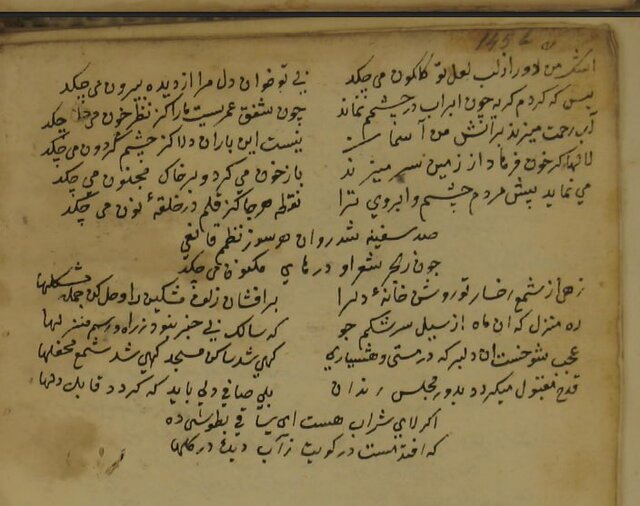 1454
اشک من دور از لب لعل تو گلگون می‌چکد بی تو خوان دل مرا از دیده بیرون می‌چکد
بس که کردم گریه چون ابر آب در چشمم نماند چون شفق عمریست مارا کز نظر خون می‌چکد
آب رحمت میزند بر آتش من آسمان نیست این باران دلا کز چشم گردون می‌چکد
لالها کز خون فرهاد از زمین سر میزند باز خون می‌گردد و بر خاک مجنون می‌چکد
می نماید پیش مردم چشم و ابروی ترا نقطه هر جا کز قلم در حلقهٔ نون می‌چکد
صد سفینه شد روان هر سو ز نظم
چون ز بحر شعر او درهای مکنون می‌چکد
زهی از شمع رخسار تو روشن خانهٔ دلها برافشان زلف مشکین را و حل کن جمله مشکلها
ره منزل که آن ماه از سیل سرشکم جو که سالک بی خبر نبود ز راه و رسم منزلها
عجب شوخست آن دلبر که در مستی و هشیاری گهی شد ساکن مسجد گهی شد شمع محفلها
قدح مقبول میگردد بدور مجلس رندان بلی صافی دلی باید که گردد قابل دلها
اگر لای شراب هست ای ساقی بطوسی ده
که افتد مست در کویت ز آب دیده در گلها